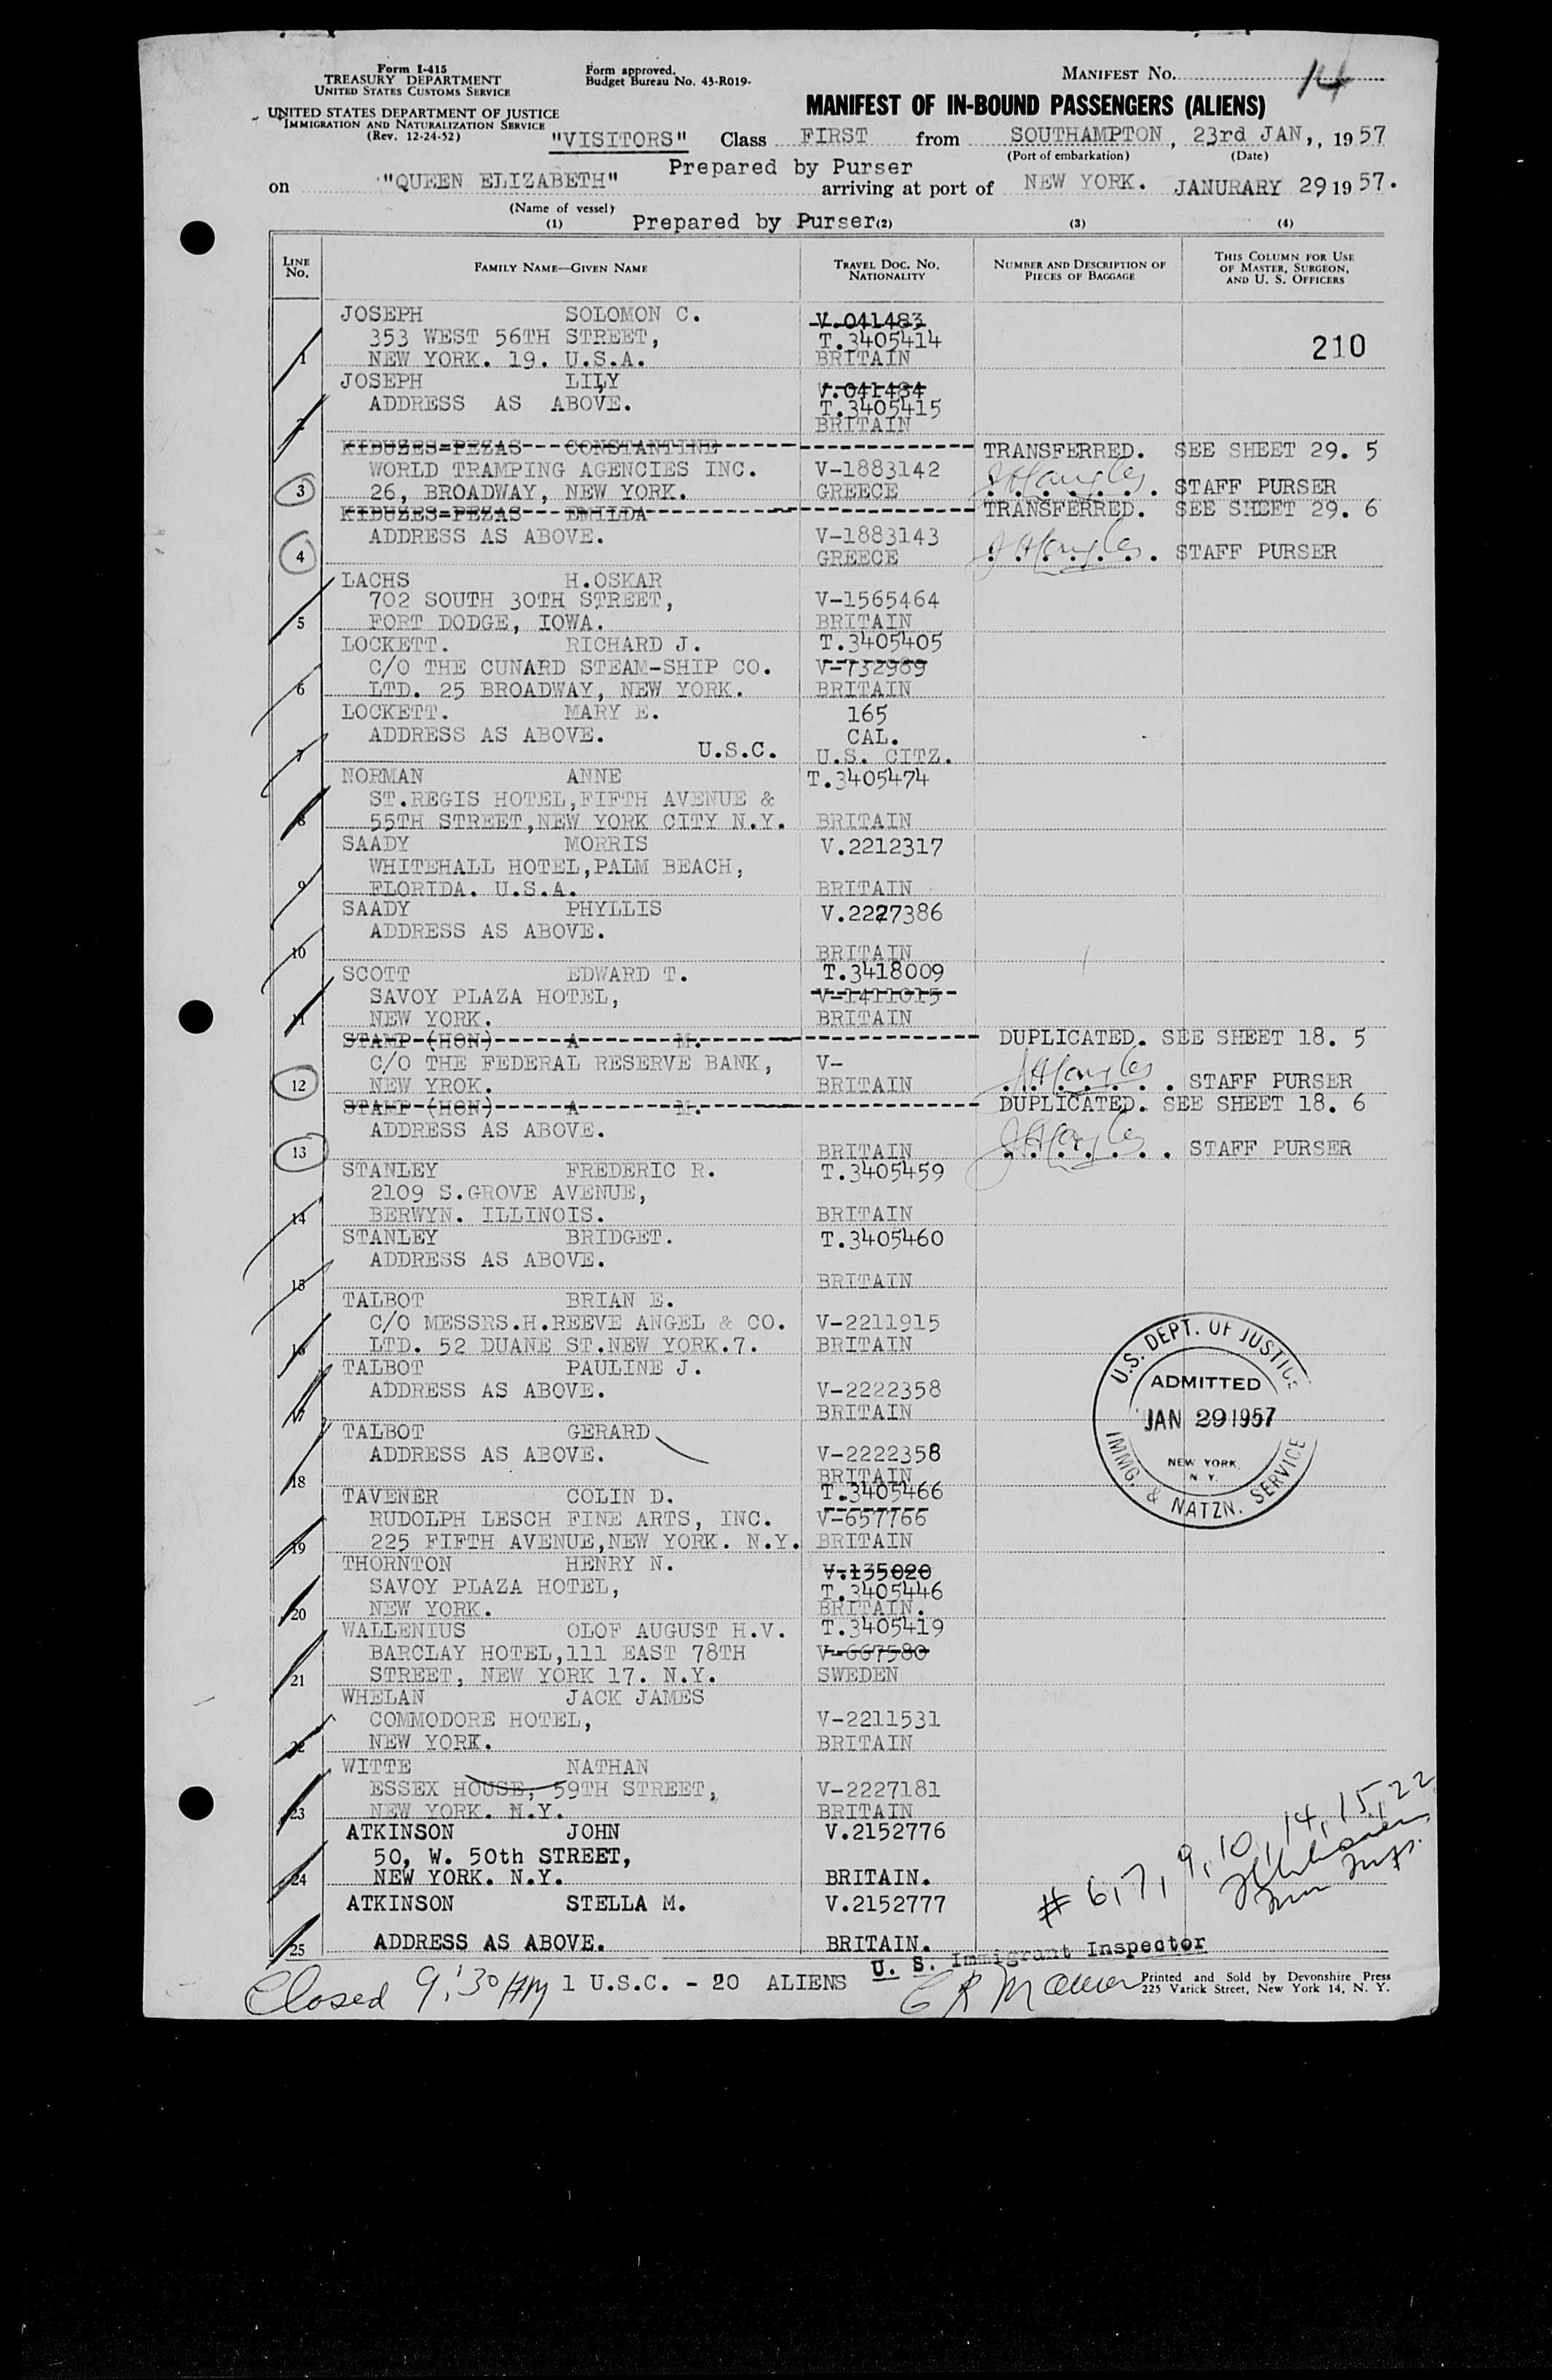 Form I-415
TREASURY DEPARTMENT
UNITED STATES CUSTOMS SERVICE
Form approved.
Budget Bureau No. 43-R019.
MANIFEST NO. 14
UNITED STATES DEPARTMENT OF JUSTICE
IMMIGRATION AND NATURALIZATION SERVICE
(Rev. 12-24-52)
MANIFEST OF IN-BOUND PASSENGERS (ALIENS)
"VISITORS" Class FIRST from SOUTHAMPTON, 23rd JAN,, 1957
(Port of embarkation) (Date)
Prepared by Purser
on "QUEEN ELIZABETH" arriving at port of NEW YORK. JANURARY 29 1957.
(Name of vessel)
(1) Prepared by Purser (2) (3) (4)
LINE No. FAMILY NAME—GIVEN NAME TRAVEL DOC. NO. NATIONALITY NUMBER AND DESCRIPTION OF PIECES OF BAGGAGE THIS COLUMN FOR USE OF MASTER, SURGEON, AND U. S. OFFICERS
JOSEPH SOLOMON C. V.041483
353 WEST 56TH STREET, T.3405414
1 NEW YORK. 19. U.S.A. BRITAIN 210
JOSEPH LILY V.041484
ADDRESS AS ABOVE. T.3405415
2 BRITAIN
KIDUZES=PEZAS CONSTANTINE TRANSFERRED. SEE SHEET 29. 5
WORLD TRAMPING AGENCIES INC. V-1883142
3 26, BROADWAY, NEW YORK. GREECE STAFF PURSER
KIDUZES=PEZAS EMILDA TRANSFERRED. SEE SHEET 29. 6
ADDRESS AS ABOVE. V-1883143
4 GREECE STAFF PURSER
LACHS H.OSKAR
702 SOUTH 30TH STREET, V-1565464
5 FORT DODGE, IOWA. BRITAIN
LOCKETT. RICHARD J. T.3405405
C/O THE CUNARD STEAM-SHIP CO. V-732989
6 LTD. 25 BROADWAY, NEW YORK. BRITAIN
LOCKETT. MARY E. 165
ADDRESS AS ABOVE. CAL.
7 U.S.C. U.S. CITZ.
NORMAN ANNE T.3405474
ST.REGIS HOTEL,FIFTH AVENUE &
8 55TH STREET,NEW YORK CITY N.Y. BRITAIN
SAADY MORRIS V.2212317
WHITEHALL HOTEL,PALM BEACH,
9 FLORIDA. U.S.A. BRITAIN
SAADY PHYLLIS V.2227386
ADDRESS AS ABOVE.
10 BRITAIN
SCOTT EDWARD T. T.3418009
SAVOY PLAZA HOTEL, V-1411015
11 NEW YORK. BRITAIN
STAMP (HON) A M. DUPLICATED. SEE SHEET 18. 5
C/O THE FEDERAL RESERVE BANK, V-
12 NEW YROK. BRITAIN STAFF PURSER
STAMP (HON) A M. DUPLICATED. SEE SHEET 18. 6
ADDRESS AS ABOVE.
13 BRITAIN STAFF PURSER
STANLEY FREDERIC R. T.3405459
2109 S.GROVE AVENUE,
14 BERWYN. ILLINOIS. BRITAIN
STANLEY BRIDGET. T.3405460
ADDRESS AS ABOVE.
15 BRITAIN
TALBOT BRIAN E.
C/O MESSRS.H.REEVE ANGEL & CO. V-2211915
16 LTD. 52 DUANE ST.NEW YORK.7. BRITAIN
TALBOT PAULINE J.
ADDRESS AS ABOVE. V-2222358
17 BRITAIN
TALBOT GERARD
ADDRESS AS ABOVE. V-2222358
18 BRITAIN
TAVENER COLIN D. T.3405466
RUDOLPH LESCH FINE ARTS, INC. V-657766
19 225 FIFTH AVENUE,NEW YORK. N.Y. BRITAIN
THORNTON HENRY N. V.135020
SAVOY PLAZA HOTEL, T.3405446
20 NEW YORK. BRITAIN.
WALLENIUS OLOF AUGUST H.V. T.3405419
BARCLAY HOTEL,111 EAST 78TH V-667580
21 STREET, NEW YORK 17. N.Y. SWEDEN
WHELAN JACK JAMES
COMMODORE HOTEL, V-2211531
22 NEW YORK. BRITAIN
WITTE NATHAN
ESSEX HOUSE, 59TH STREET, V-2227181
23 NEW YORK. N.Y. BRITAIN
ATKINSON JOHN V.2152776
50, W. 50th STREET,
24 NEW YORK. N.Y. BRITAIN.
ATKINSON STELLA M. V.2152777
25 ADDRESS AS ABOVE. BRITAIN.
U.S. DEPT. OF JUSTICE
ADMITTED
JAN 29 1957
NEW YORK,
N. Y.
IMMG. & NATZN. SERVICE
# 6,7,9,10,14,15,22
U. S. Immigrant Inspector
Closed 9:30 AM 1 U.S.C. - 20 ALIENS
Printed and Sold by Devonshire Press
225 Varick Street, New York 14, N. Y.